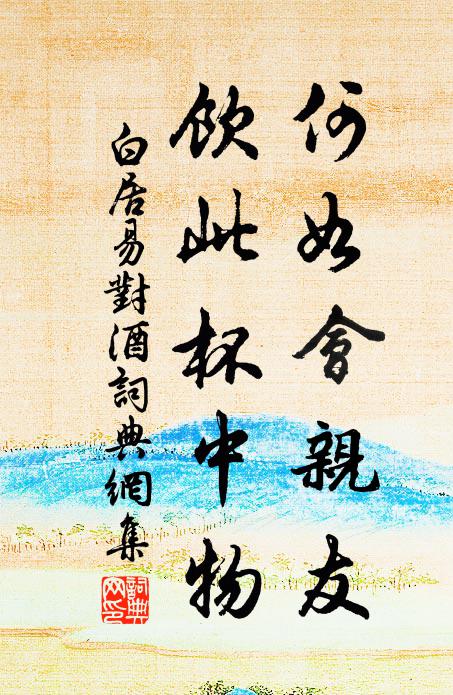 何如會親友
飲此杯中物
白居易對酒詞典網集